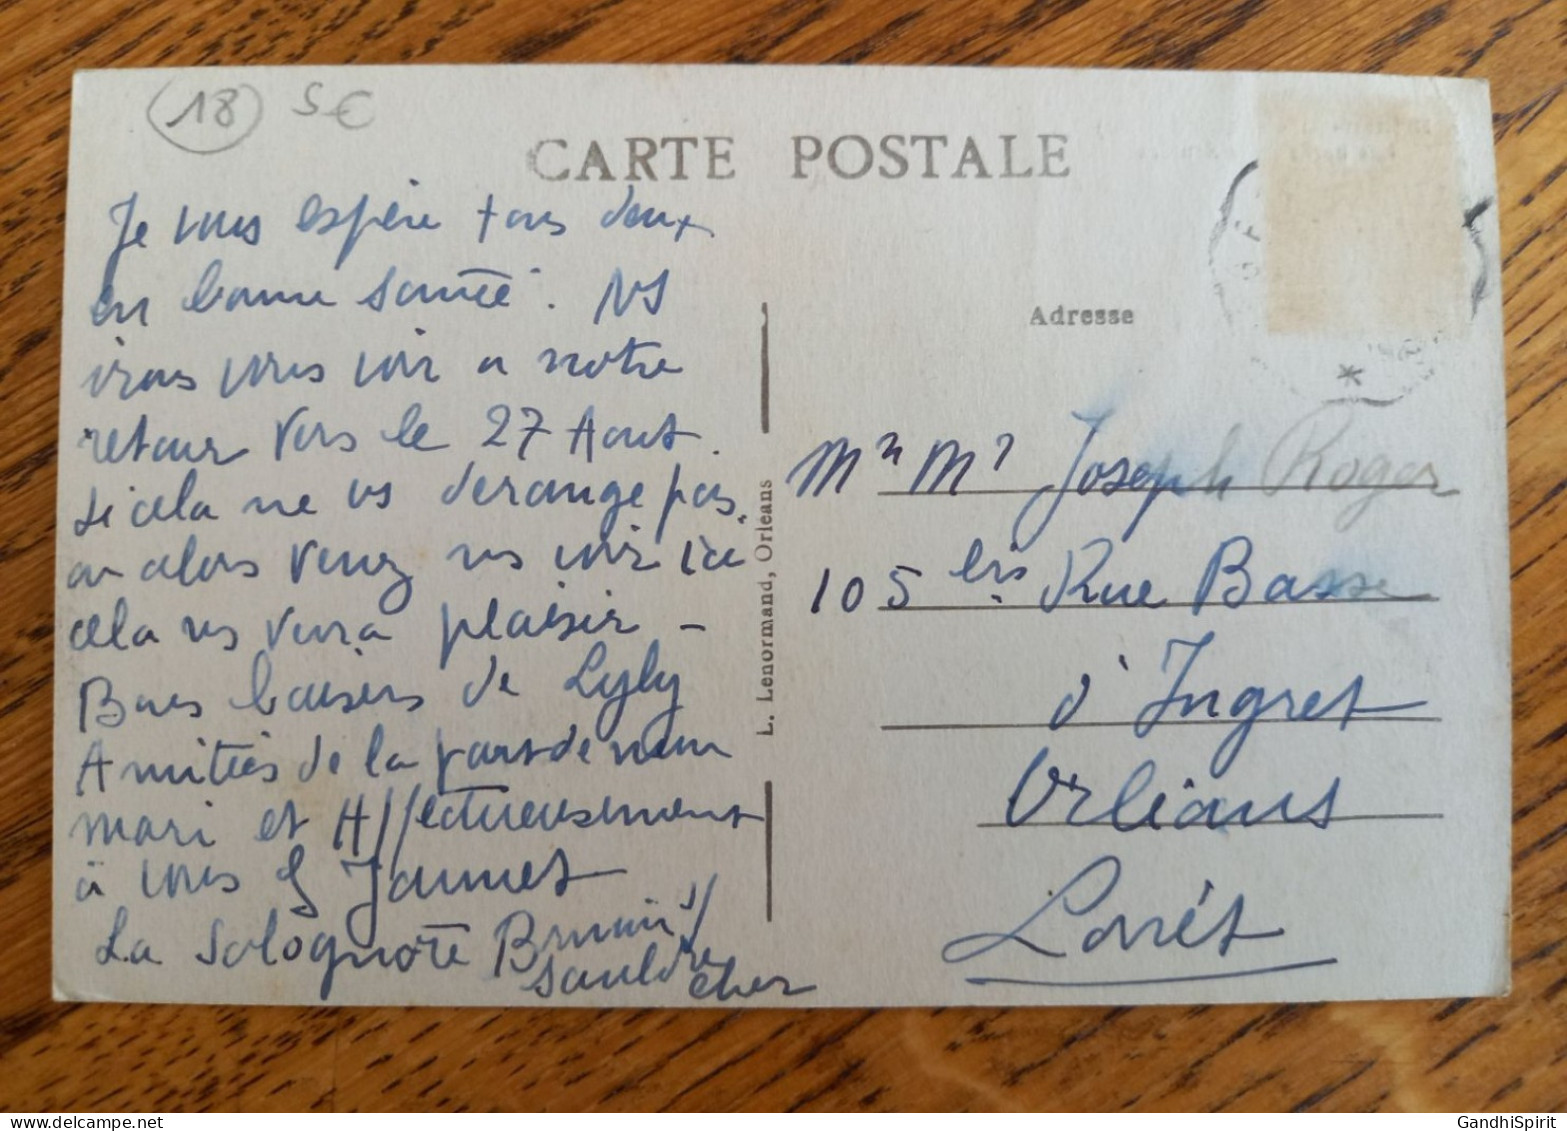 18 5€
CARTE POSTALE
Je vous espère tous deux
en bonne santé. NS
irons vous voir a notre
retour vers le 27 Aout.
si cela ne vs derange pas.
ou alors venez ns voir ici
cela ns ferra plaisir –
Bons baisers de Lyly
Amitiés de la part de mon
mari et Affectueusement
à vous J Jaunet
La Solognote Brinon s/
sauldre cher
L. Lenormand, Orléans
Adresse
Mr Mr Joseph Roger
105 bis Rue Basse
d'Ingret
Orléans
Loirét
GandhiSpirit